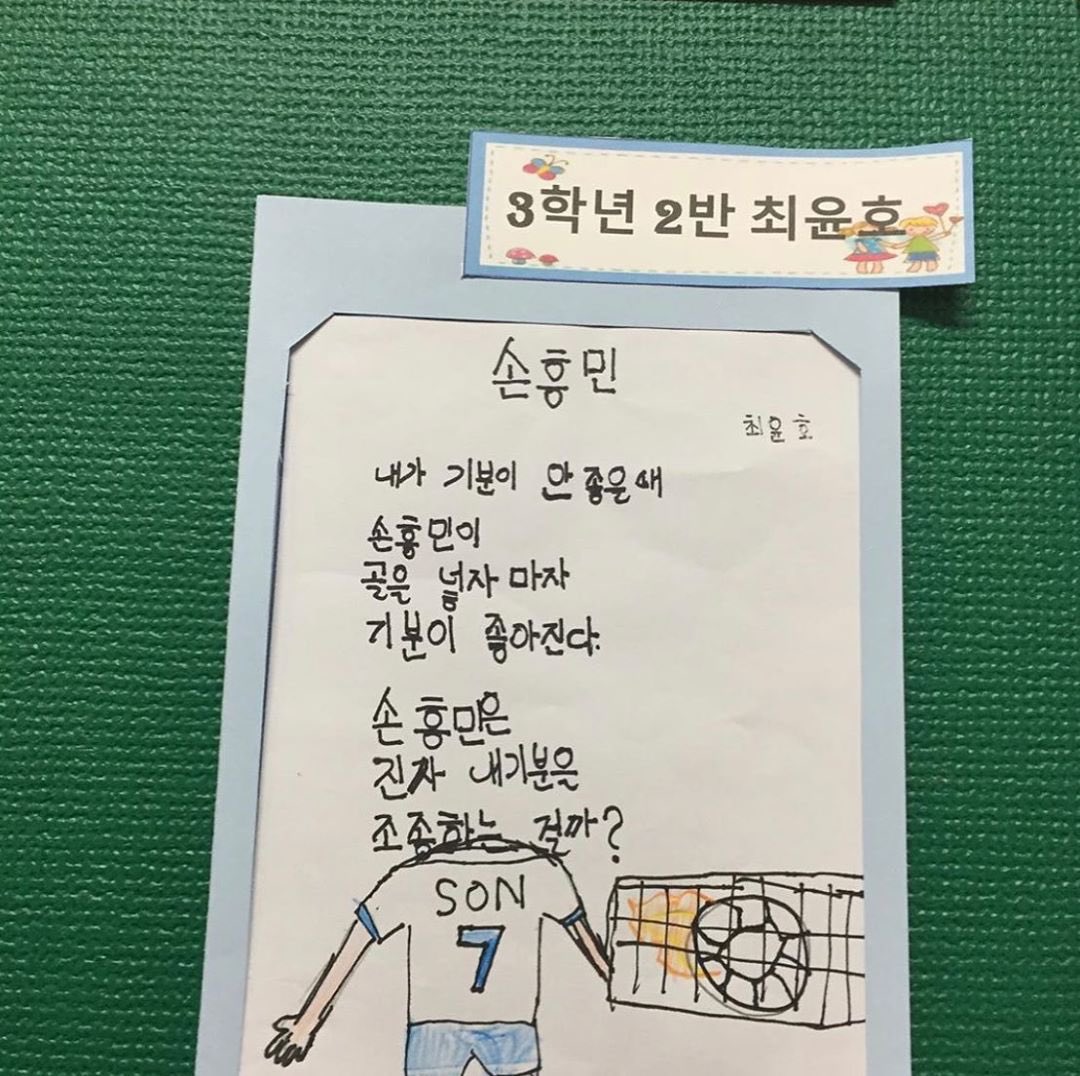 3학년 2반 최윤호
손흥민
최윤호
내가 기분이 안 좋을 때
손흥민이
골을 넣자 마자
기분이 좋아진다.
손흥민은
진짜 내기분을
조종하는 걸까?
SON
7